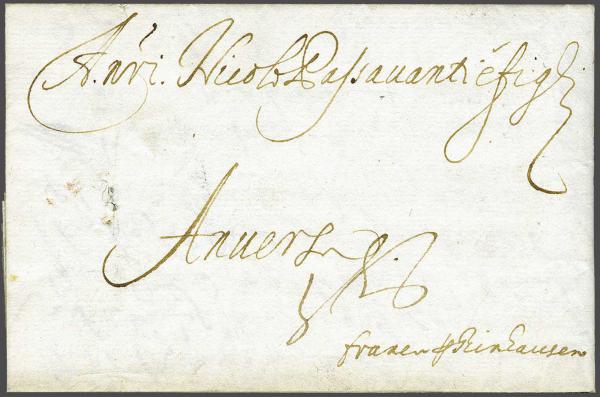 A. nri. Nicolo Passavanti é figli
Anversa
franco Rheinhausen